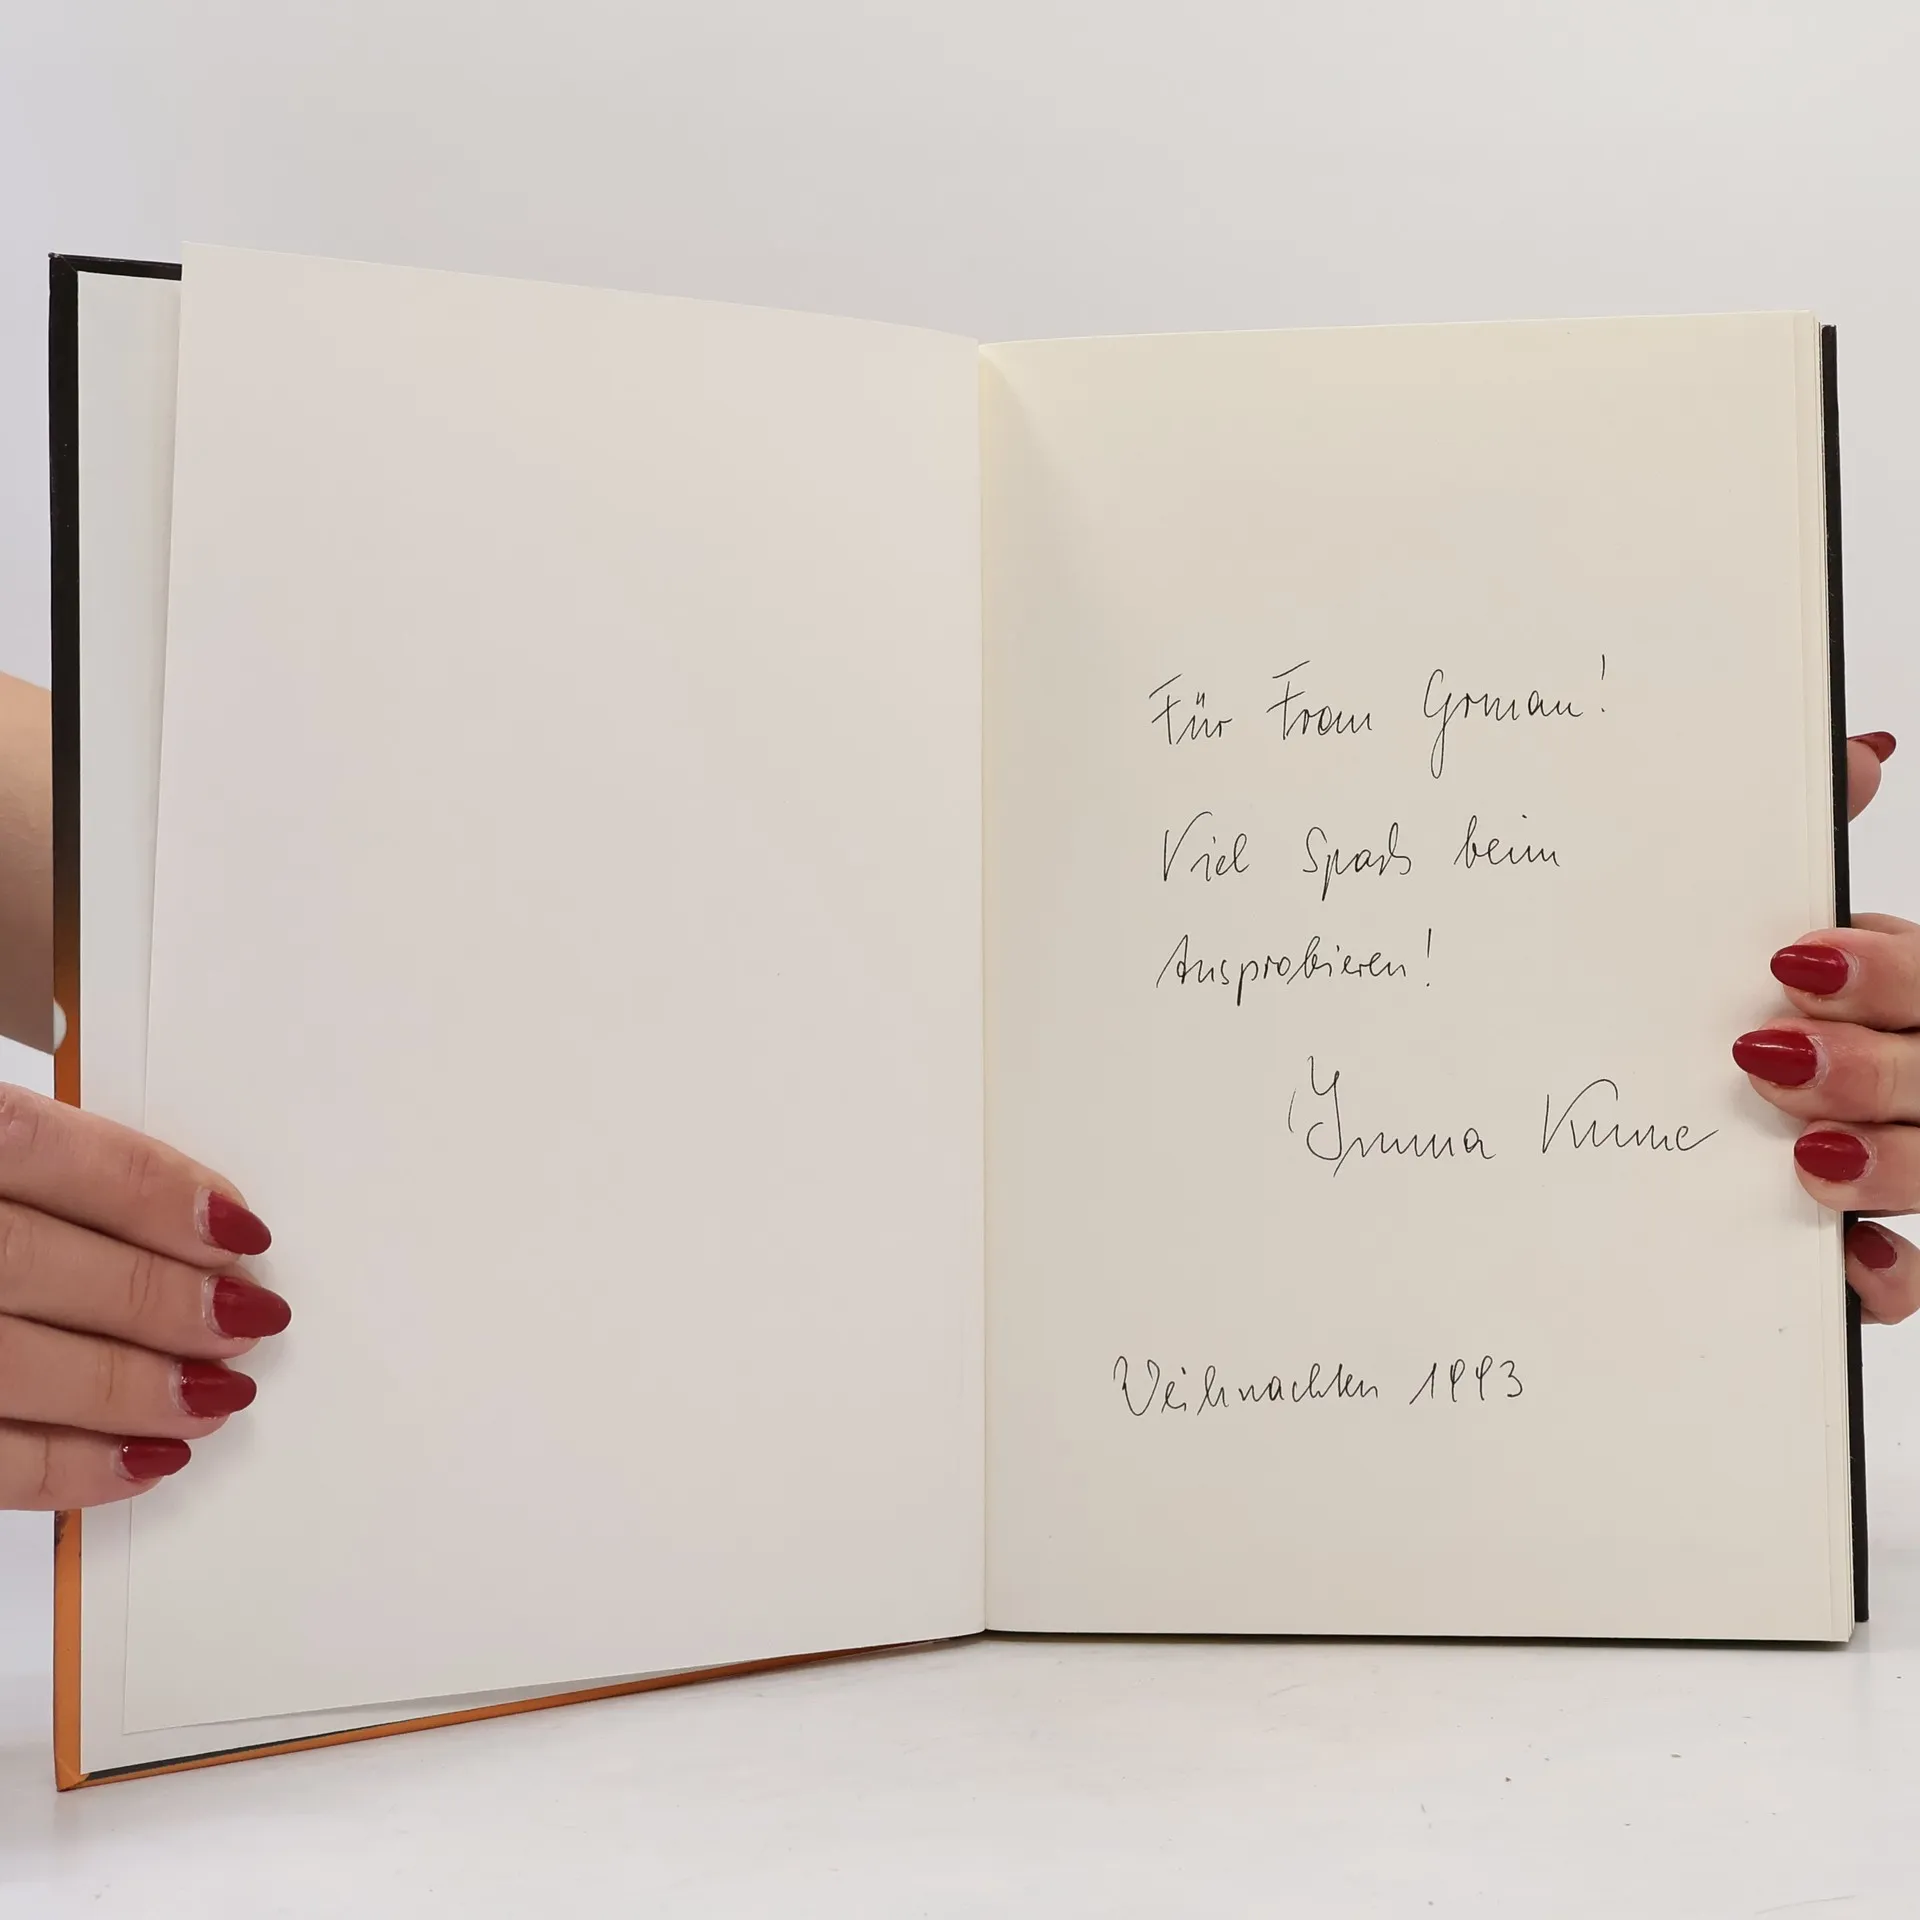 Für Frau Gorman!
Viel Spaß beim
Ausprobieren!
Imma
Weihnachten 1993